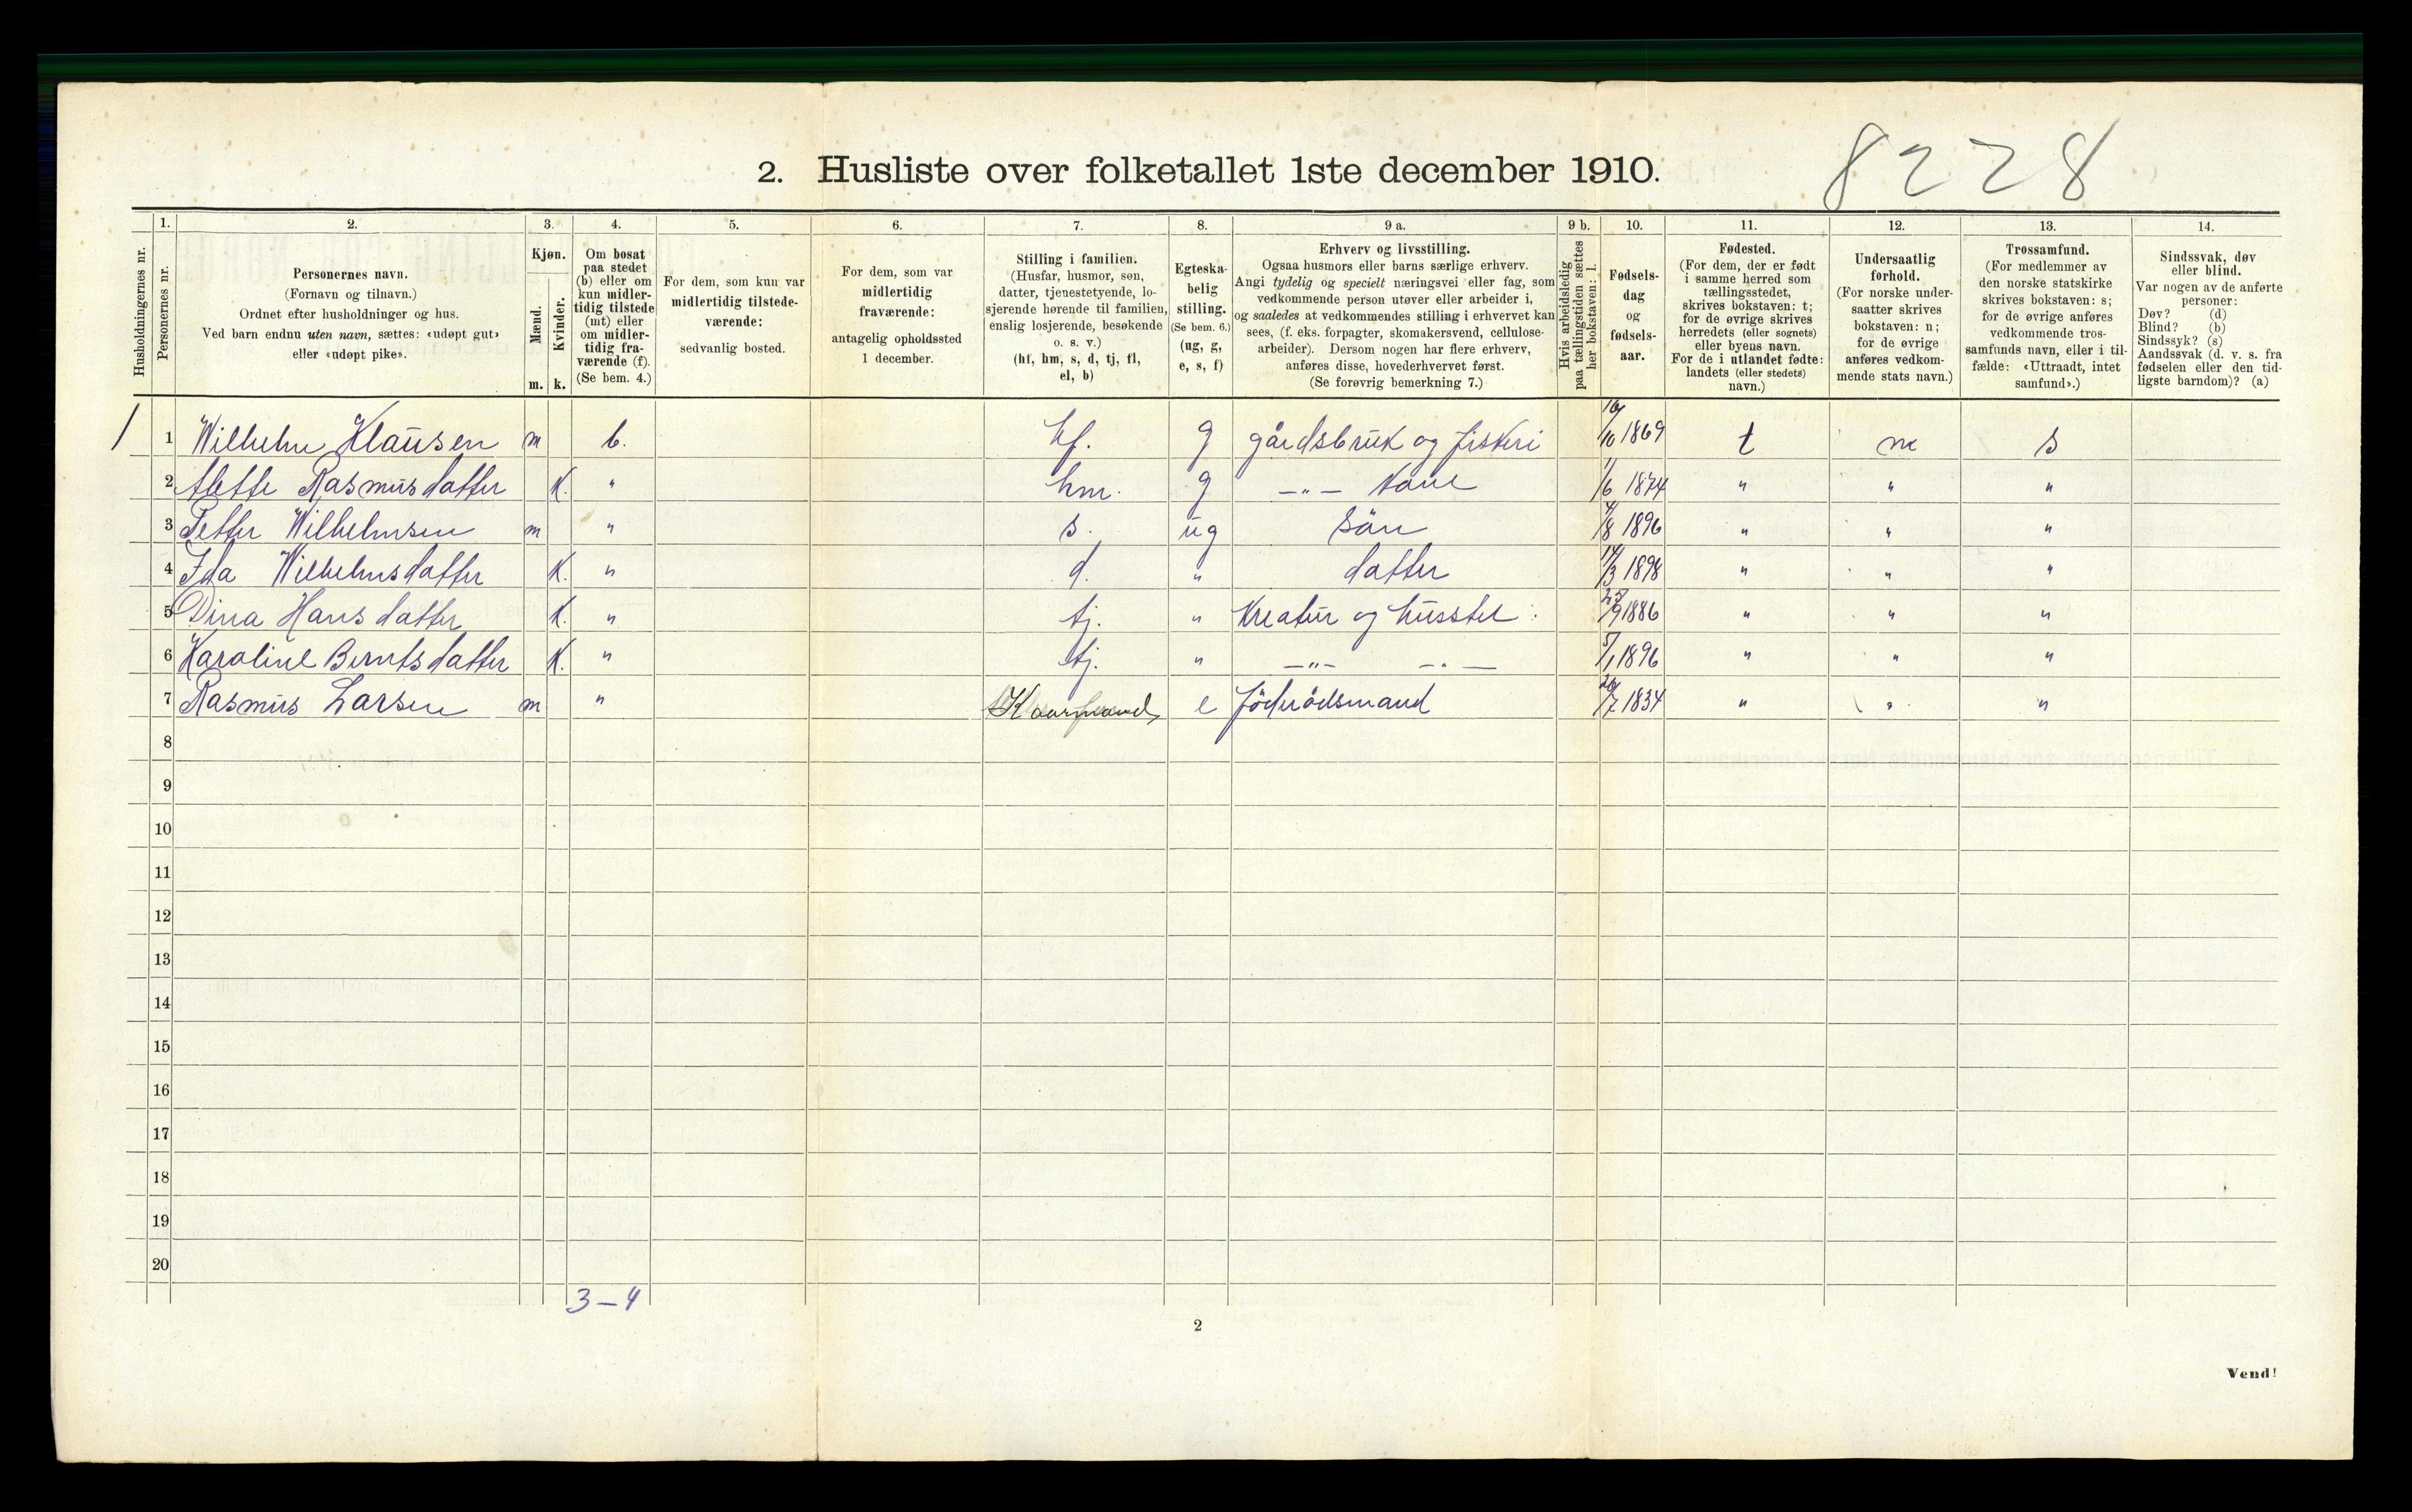 2. Husliste over folketallet 1ste december 1910.
8228
Husholdningernes nr.
1.
Personernes nr.
2.
Personernes navn.
(Fornavn og tilnavn.)
Ordnet efter husholdninger og hus.
Ved barn endnu uten navn, sættes: «udøpt gut»
eller «udøpt pike».
3.
Kjøn.
Mænd.
Kvinder.
m. k.
4.
Om bosat
paa stedet
(b) eller om
kun midler-
tidig tilstede
(mt) eller
om midler-
tidig fra-
værende (f).
(Se bem. 4.)
5.
For dem, som kun var
midlertidig tilstede-
værende:
sedvanlig bosted.
6.
For dem, som var
midlertidig
fraværende:
antagelig opholdssted
1 december.
7.
Stilling i familien.
(Husfar, husmor, søn,
datter, tjenestetyende, lo-
sjerende hørende til familien,
enslig losjerende, besøkende
o. s. v.)
(hf, hm, s, d, tj, fl,
el, b)
8.
Egteska-
belig
stilling.
(Se bem. 6.)
(ug, g,
e, s, f)
9 a.
Erhverv og livsstilling.
Ogsaa husmors eller barns særlige erhverv.
Angi tydelig og specielt næringsvei eller fag, som
vedkommende person utøver eller arbeider i,
og saaledes at vedkommendes stilling i erhvervet kan
sees, (f. eks. forpagter, skomakersvend, cellulose-
arbeider). Dersom nogen har flere erhverv,
anføres disse, hovederhvervet først.
(Se forøvrig bemerkning 7.)
9 b.
Hvis arbeidsledig
paa tællingstiden sættes
her bokstaven: l.
10.
Fødsels-
dag
og
fødsels-
aar.
11.
Fødested.
(For dem, der er født
i samme herred som
tællingsstedet,
skrives bokstaven: t;
for de øvrige skrives
herredets (eller sognets)
eller byens navn.
For de i utlandet fødte:
landets (eller stedets)
navn.)
12.
Undersaatlig
forhold.
(For norske under-
saatter skrives
bokstaven: n;
for de øvrige
anføres vedkom-
mende stats navn.)
13.
Trossamfund.
(For medlemmer av
den norske statskirke
skrives bokstaven: s;
for de øvrige anføres
vedkommende tros-
samfunds navn, eller i til-
fælde: «Uttraadt, intet
samfund».)
14.
Sindssvak, døv
eller blind.
Var nogen av de anførte
personer:
Døv? (d)
Blind? (b)
Sindssyk? (s)
Aandssvak (d. v. s. fra
fødselen eller den tid-
ligste barndom)? (a)
1 1 Wilhelm Klausen m b. hf. g gårdsbruk og fiskeri 16/10 1869 t n s
2 Alette Rasmusdatter k. " hm. g —"— kone 1/6 1874 " " "
3 Petter Wilhelmsen m " s. ug sön 4/8 1896 " " "
4 Ida Wilhelmsdatter k. " d. " datter 14/3 1898 " " "
5 Dina Hansdatter k. " tj. " Kreatur og husstel 25/9 1886 " " "
6 Karoline Berntsdatter k. " tj. " —"— —"— 5/1 1896 " " "
7 Rasmus Larsen m " Kaarmand e föderådsmand 26/7 1834 " " "
8
9
10
11
12
13
14
15
16
17
18
19
20
3–4
2
Vend!